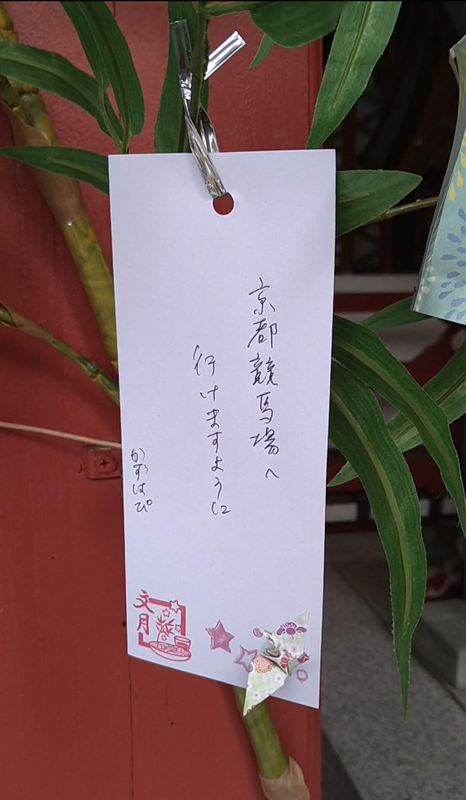 京都競馬場へ
行けますように
かずはぴ
文月